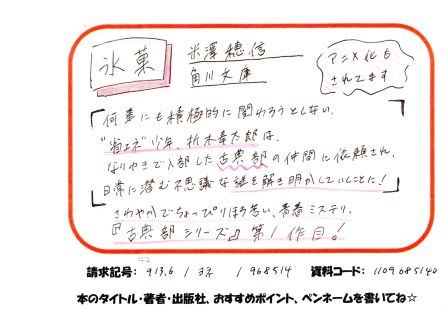 氷菓
米澤穂信
角川文庫
アニメ化も
されてます
何事にも積極的に関わろうとしない、
"省エネ"少年、折木奉太郎は、
なりゆきで入部した古典部の仲間に依頼され、
日常に潜む不思議な謎を解き明かしていくことに!
さわやかでちょっぴりほろ苦い、青春ミステリ、
『古典部シリーズ』第1作目!
請求記号: 913.6 / ヨネ / 968514 資料コード: 1109685140
本のタイトル・著者・出版社、おすすめポイント、ペンネームを書いてね☆